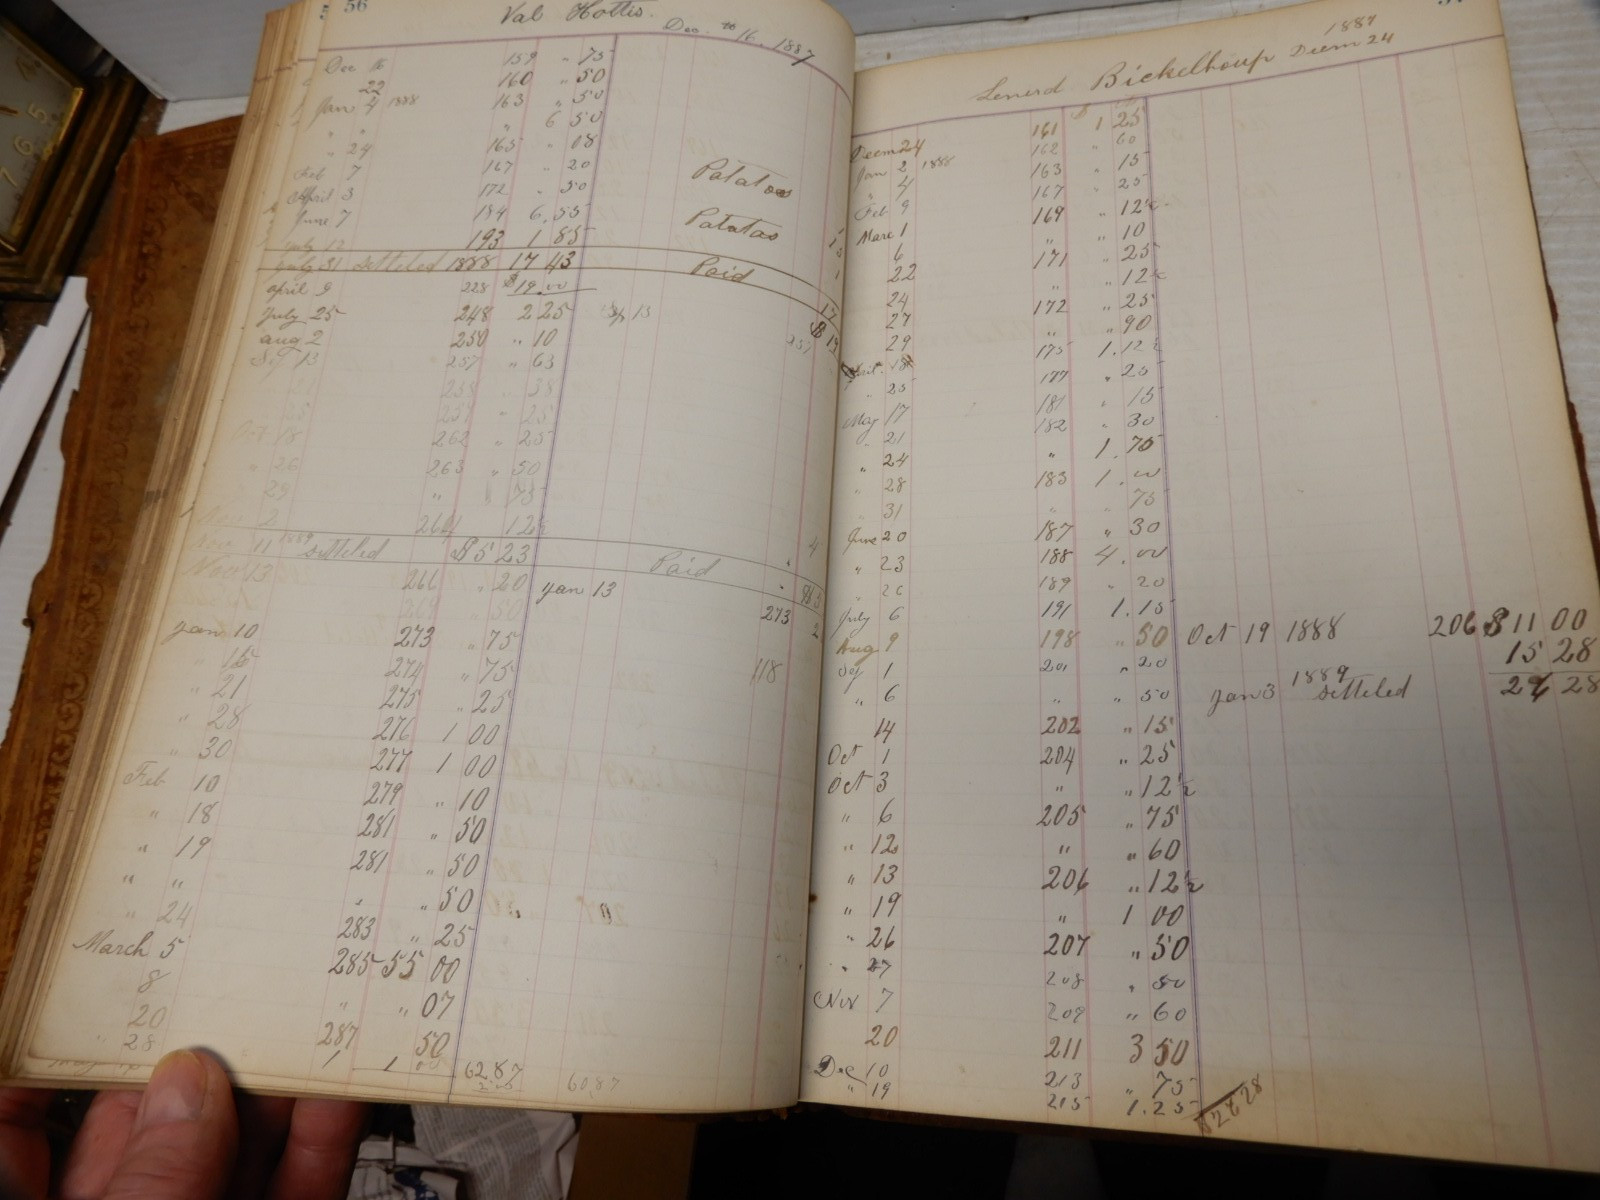 56
Val Hottis.
Dec. 16, 1887
Dec 16 159 " 75
22 160 " 50
Jan 4 1888 163 " 50
" " " 6 50
" 24 165 " 08
Feb 7 167 " 20
April 3 172 " 50 Patatoes
June 7 184 6,55
July 12 193 1 85 Patatas
July 31 settled 1888 17 43 Paid
April 9 228 $19.00
July 25 248 2 25 13
Aug 2 250 " 10
Sep 13 257 " 63
258 38
259 " 25
Oct 18 262 " 25
" 26 263 " 50
29 " 75
2 264 12½
Nov 11 1889 settled $5 23 Paid
Nov 13 266 " 20 Jan 13
50 273
Jan 10 273 " 75
15 274 " 75 118
" 21 275 " 25
" 28 276 1 00
" 30 277 1 00
Feb 10 279 " 10
" 18 281 " 50
" 19 281 " 50
" " " " 50
" 24 283 " 25
March 5 285 55 00
8 " " 07
20 287 50
" 28 1 62.87 60,87
Lenerd Bickelhoup Decem 24
1887
Decem 24 161 $1 25
Jan 2 1888 162 " 60
" 4 163 " 15
Feb 9 167 " 25
Marc 1 169 " 12½
6 " " 10
22 171 " 25
24 " " 12½
27 172 " 25
29 " " 90
April 18 175 1.12½
" 25 177 " 25
May 17 181 " 15
" 21 182 " 30
" 24 " 1.75
" 28 183 1.00
" 31 " " 75
June 20 187 " 30
" 23 188 4.00
" 189 " 20
July 6 191 1.15
Aug 9 198 " 50 Oct 19 1888 206 $11 00
15 28
Sep 1 201 " 20
" 6 " " 50 Jan 3 1889 settled 26 28
14 202 " 15
Oct 1 204 " 25
Oct 3 " " 12½
" 6 205 " 75
" 12 " " 60
" 13 206 " 12½
" 19 " 1 00
" 26 207 " 50
" 27 208 " 50
Nov 7 209 " 60
20 211 3 50
Dec 10 213 " 75
" 19 215 1.25 $26 28